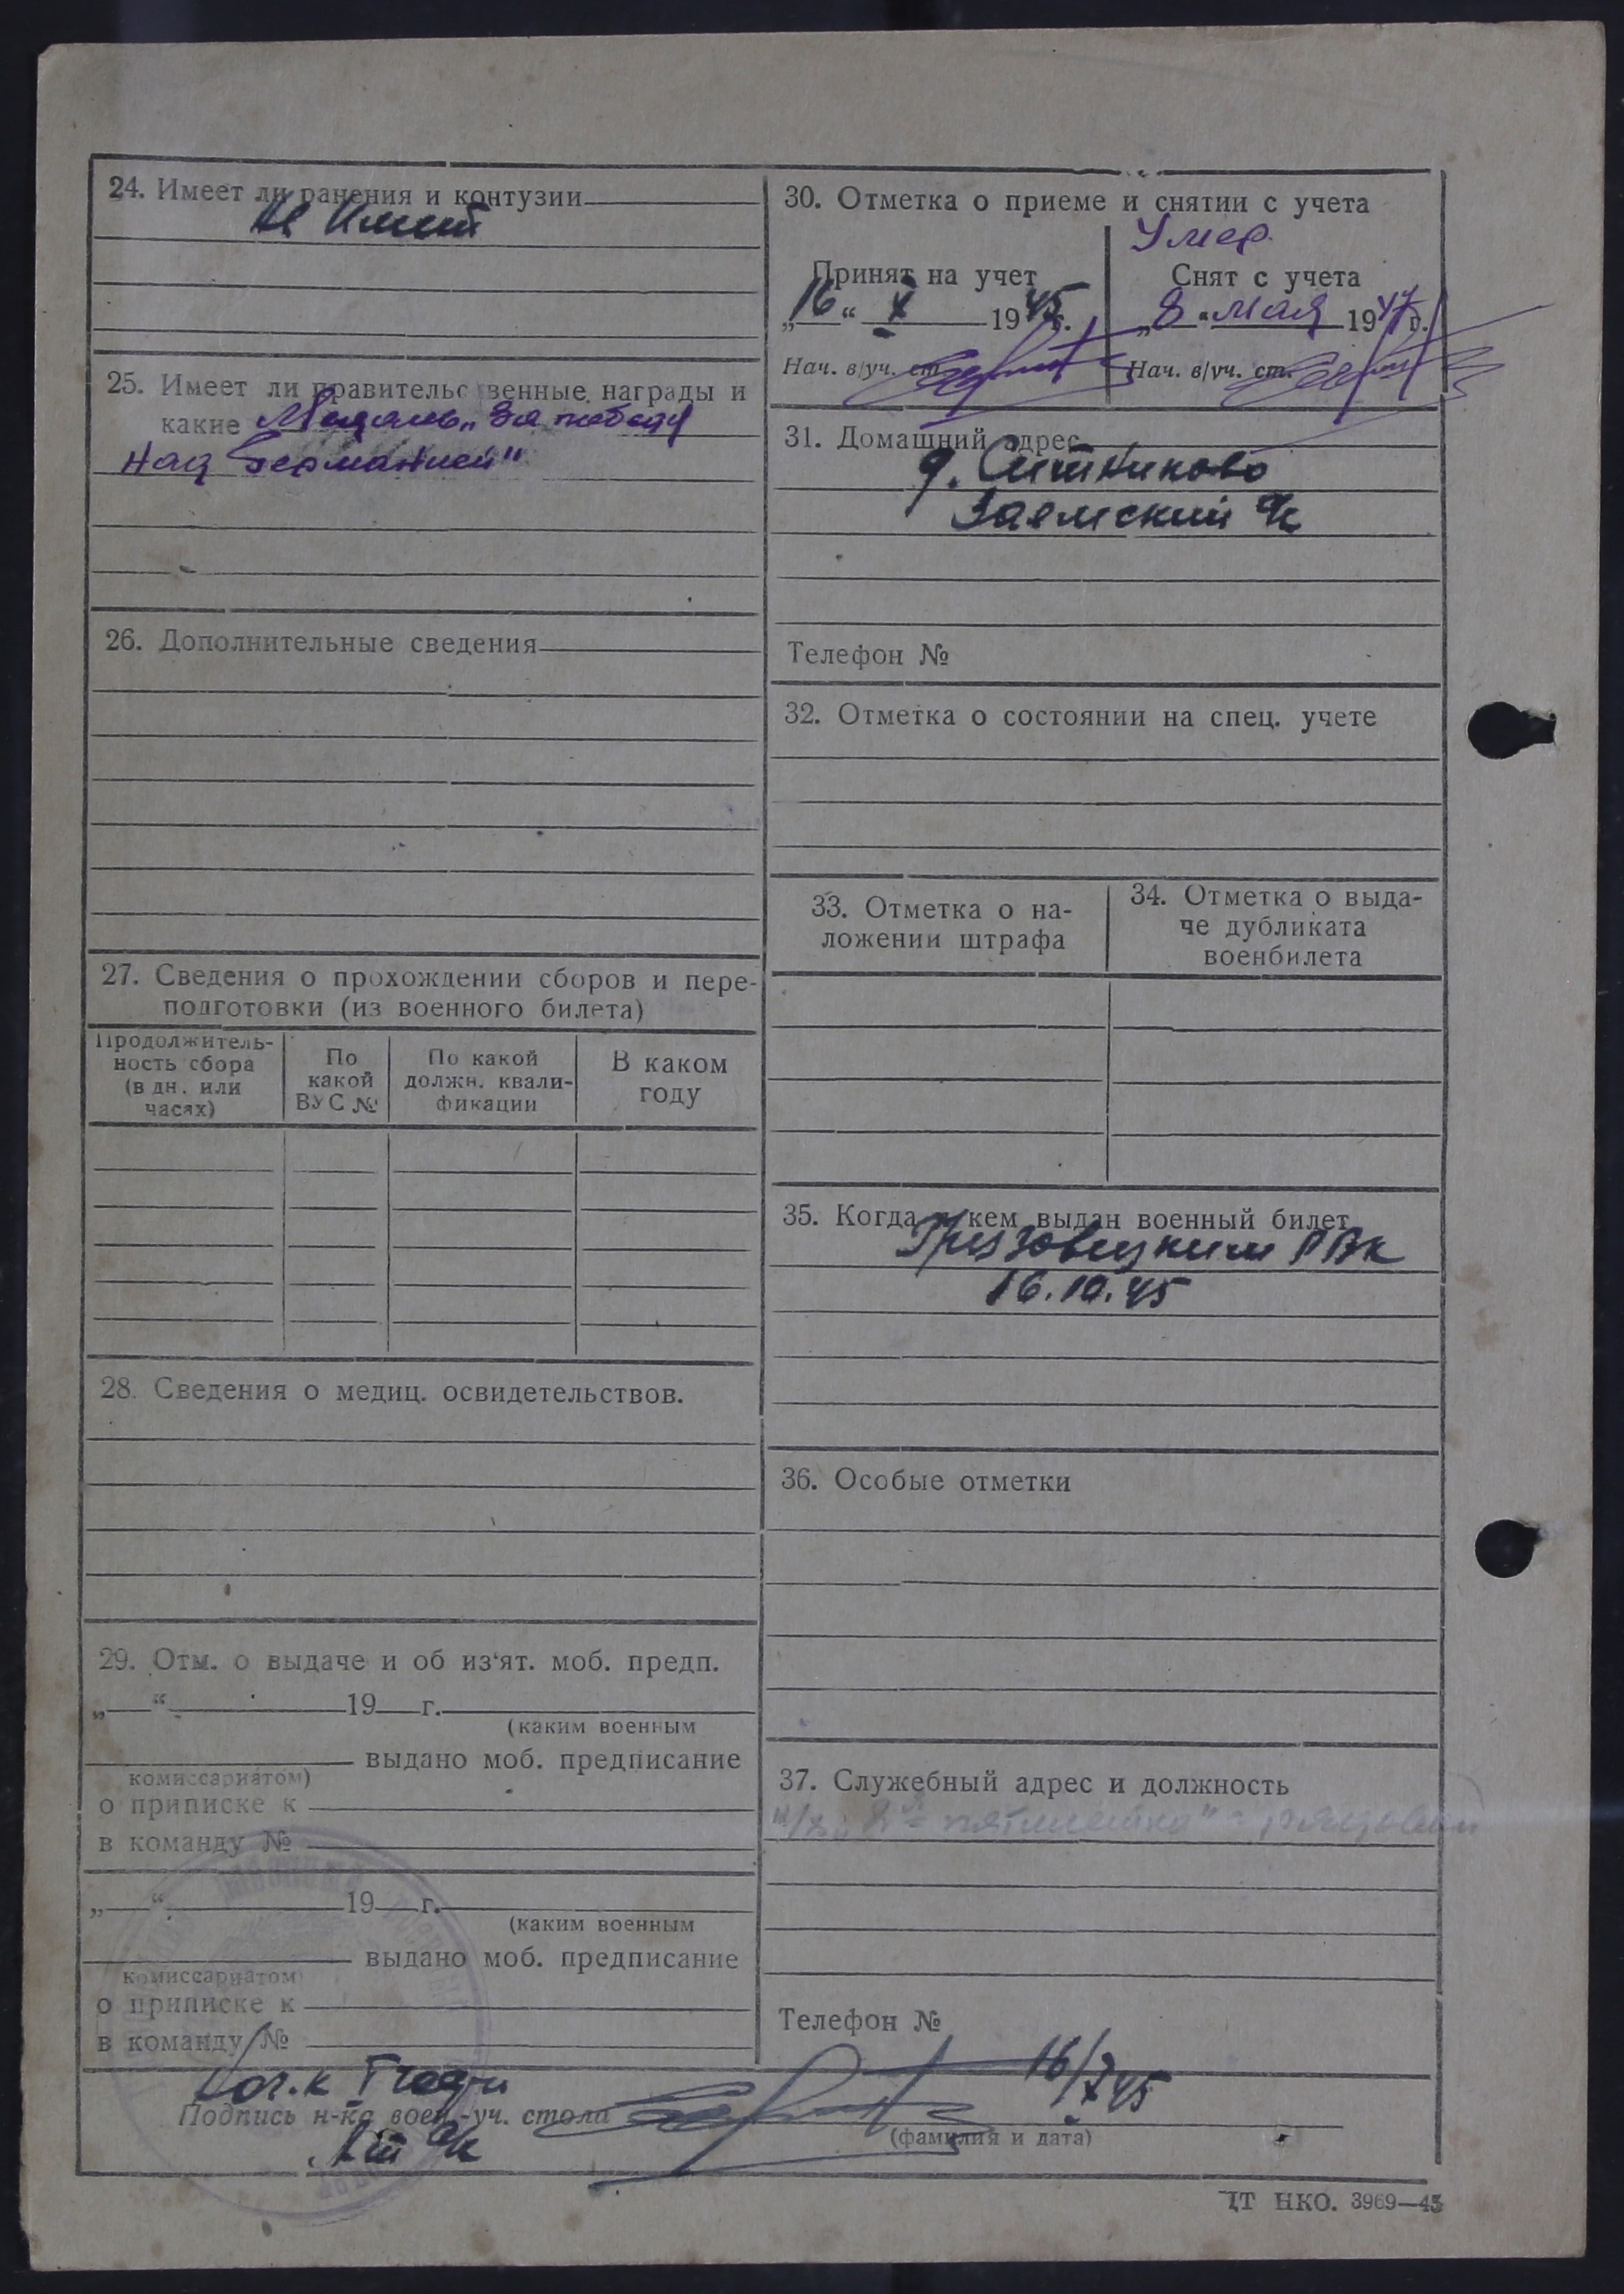 24. Имеет ли ранения и контузии
Не имеет
25. Имеет ли правительственные награды и
какие Медаль „За победу
над Германией"
26. Дополнительные сведения
27. Сведения о прохождении сборов и пере-
подготовки (из военного билета)
Продолжитель-
ность сбора
(в дн. или
часях)
По
какой
ВУС №
По какой
должн. квали-
фикации
В каком
году
28. Сведения о медиц. освидетельствов.
29. Отм. о выдаче и об из'ят. моб. предп.
„ “ 19 г.
(каким военным
выдано моб. предписание
комиссариатом)
о приписке к
в команду №
„ “ 19 г.
(каким военным
выдано моб. предписание
комиссариатом
о приписке к
в команду №
30. Отметка о приеме и снятии с учета
Умер.
Принят на учет
„16“ X 1945г.
Нач. в/уч. ст.
Снят с учета
„8“ мая 1947г.
Нач. в/уч. ст.
31. Домашний адрес
д. Ситниково
Заемский с/с
Телефон №
32. Отметка о состоянии на спец. учете
33. Отметка о на-
ложении штрафа
34. Отметка о выда-
че дубликата
военбилета
35. Когда и кем выдан военный билет
Грязовецким РВК
16.10.45
36. Особые отметки
37. Служебный адрес и должность
к/з „2я пятилетка" - рядовой
Телефон №
16/X 45
Подпись н-ка воен.-уч. стола
(фамилия и дата)
ЦТ НКО. 3969—45